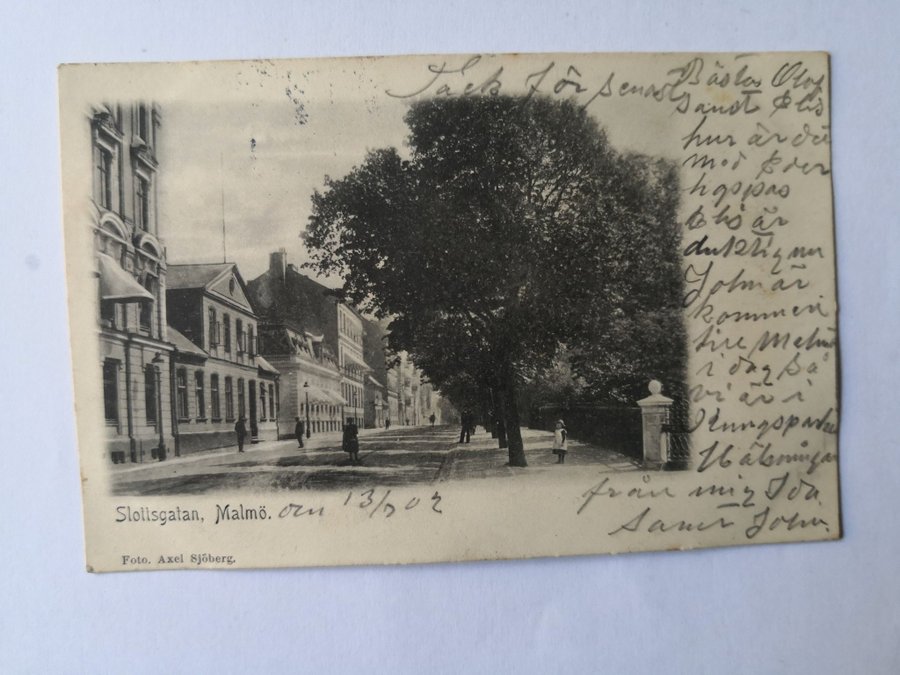 Tack för senast
Bästa Olof
samt Elis
hur är de
med Eder
hopas
Elis är
duktig nu
John är
kommen
till Malmö
i dag så
vi är i
Kungsparken
Hälsningar
från mig Ida
Samt John.
Slottsgatan, Malmö. den 13/7 02
Foto. Axel Sjöberg.